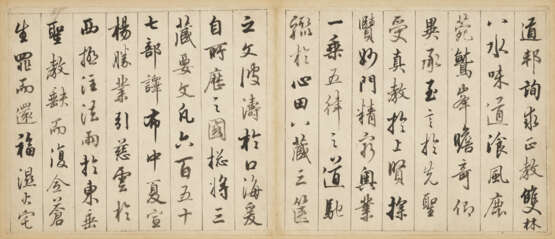 道邦詢求正教雙林
八水味道飡風鹿
菀鷲峯瞻奇仰
異承至言於先聖
受真教於上賢探
賾妙門精窮奧業
一乘五律之道馳
驟於心田八藏三篋
之文波濤於口海爰
自所歷之國揔將三
藏要文凡六百五十
七部譯布中夏宣
楊勝業引慈雲於
西極注法雨於東垂
聖教缺而復全蒼
生罪而還福濕火宅